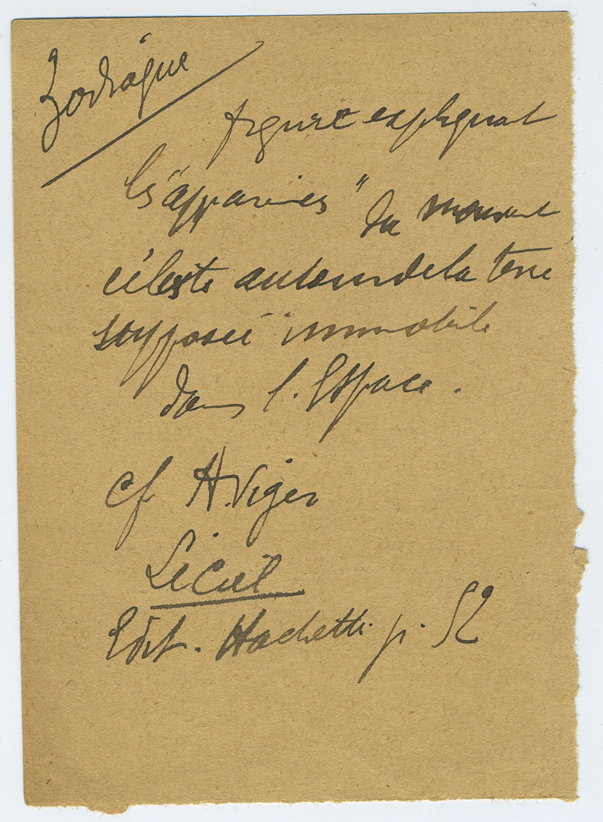 Zodiaque
figure expliquant
les "apparences" du mouvement
céleste autour de la terre
supposée immobile
dans l'Espace.
cf A. Viger
Le Ciel
Edit. Hachette p. 52